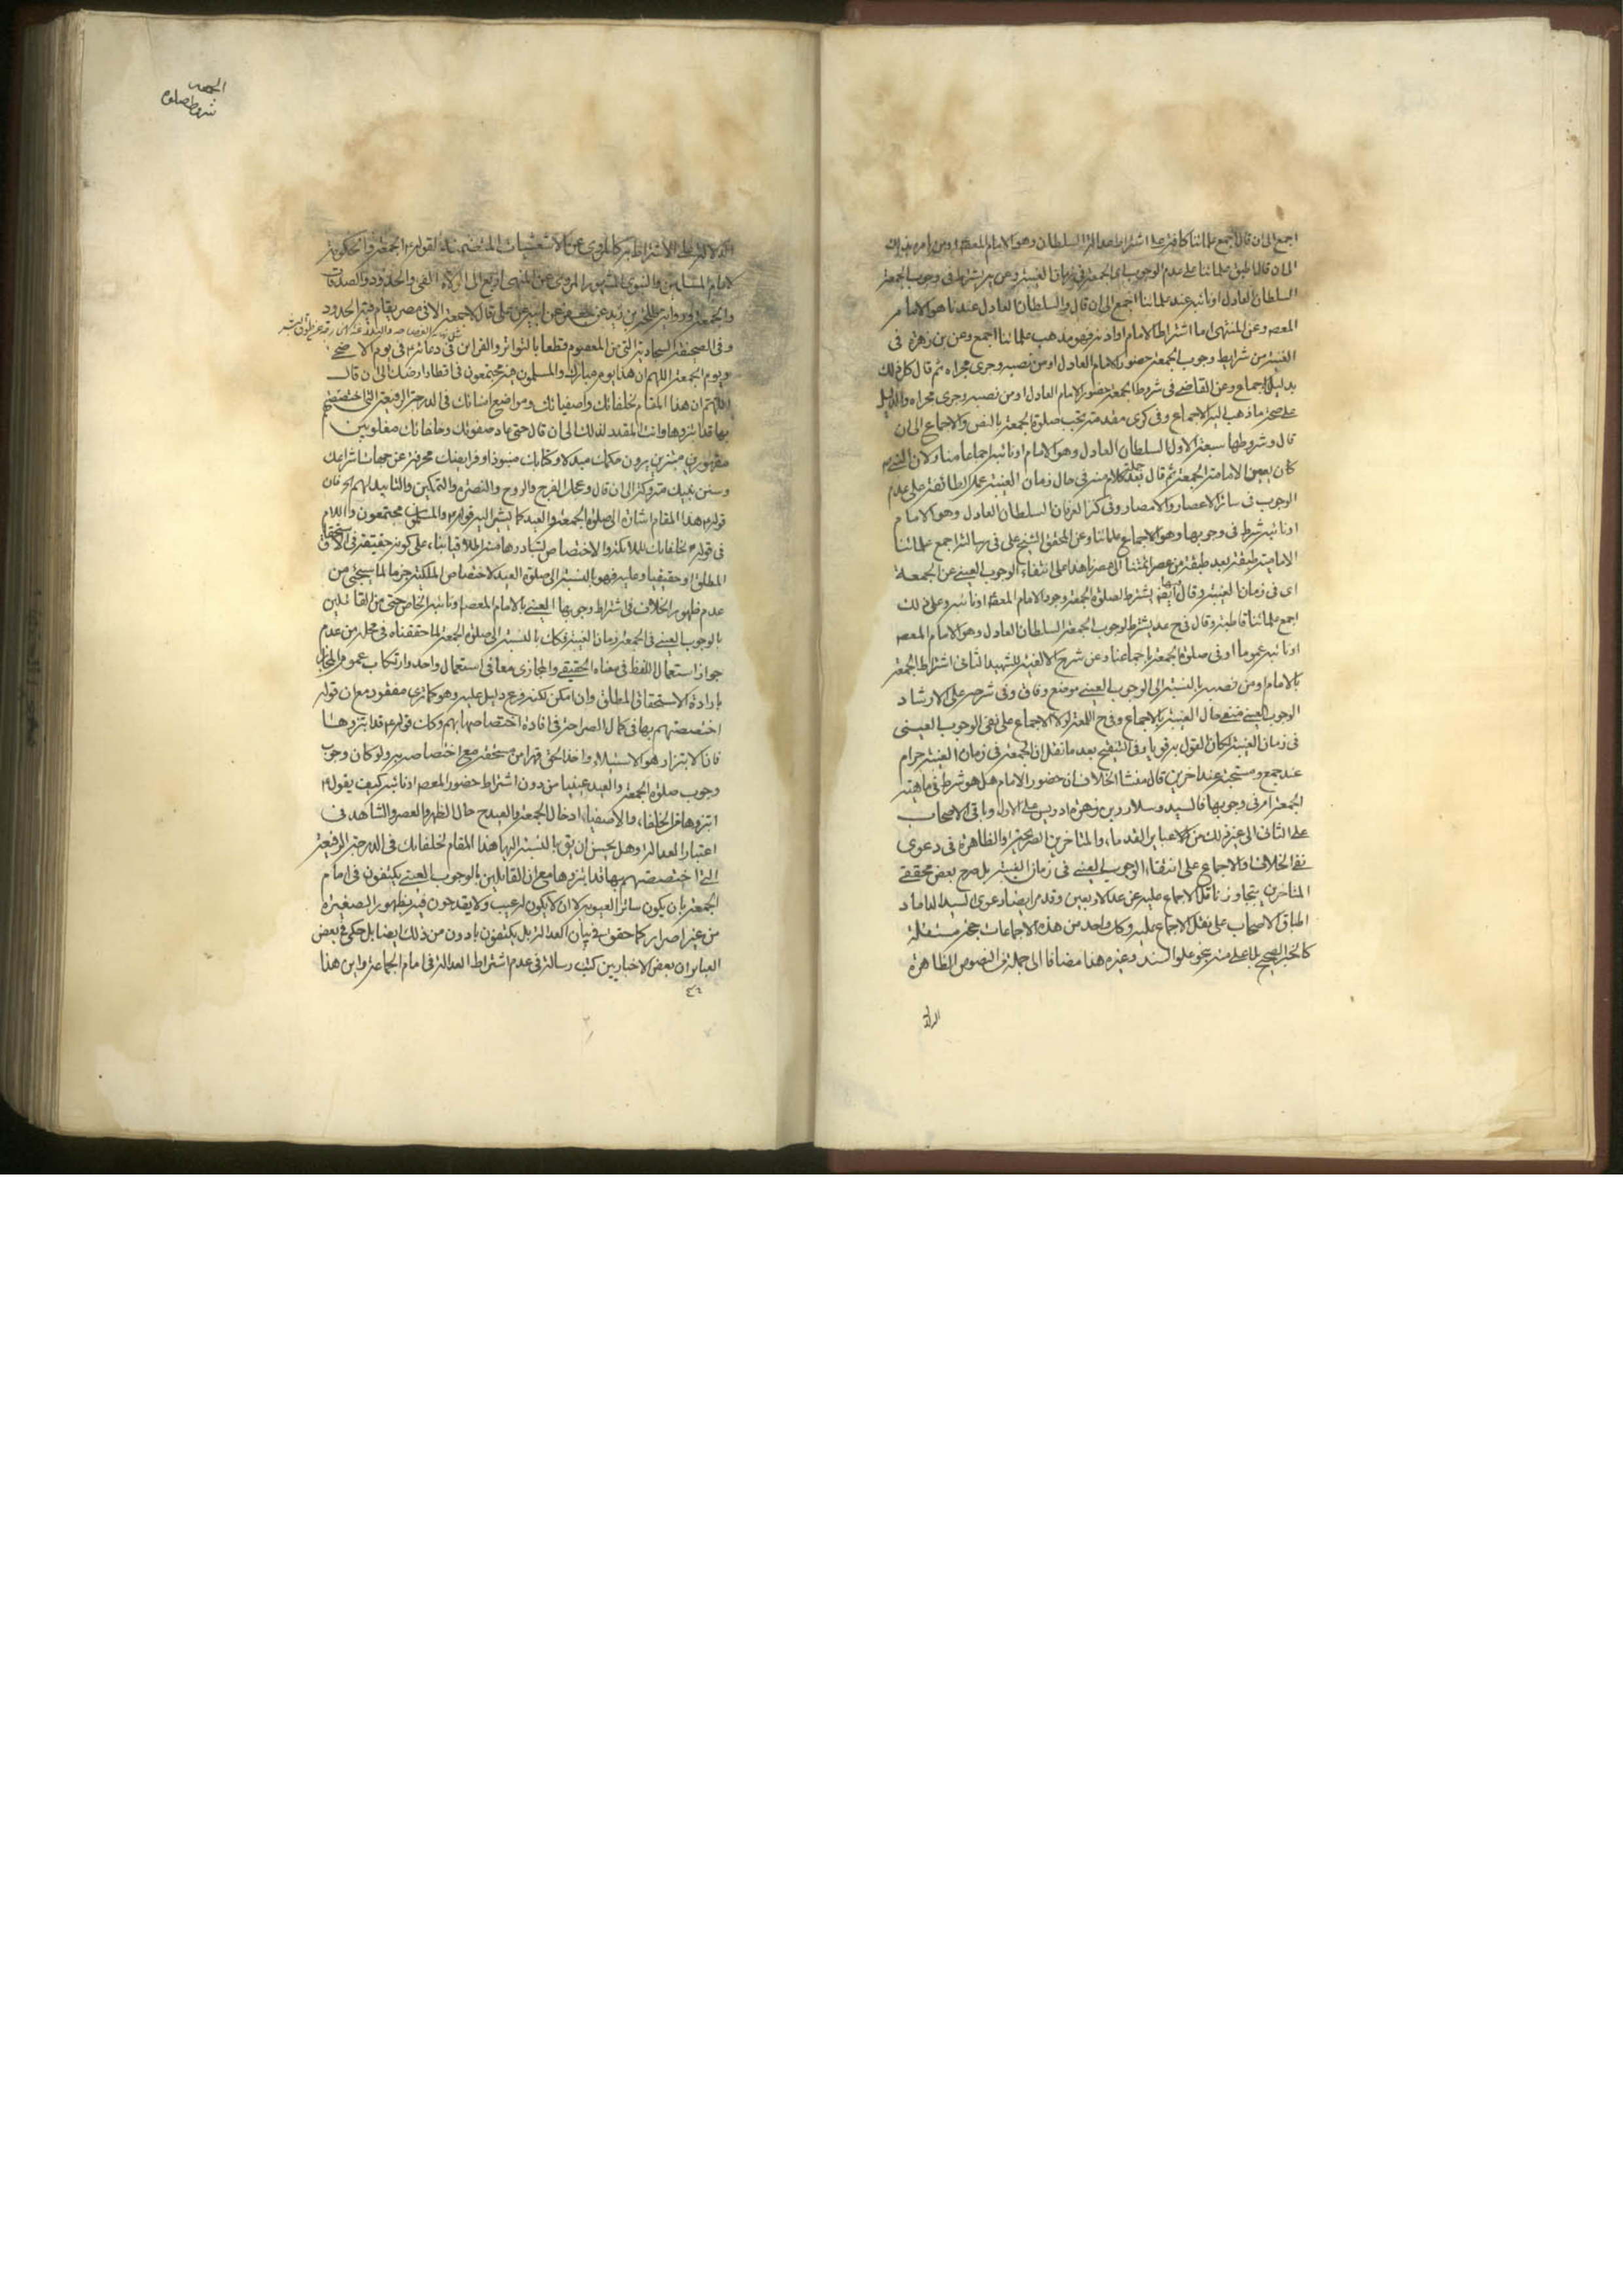 اجمع الى ان قال اجمع علمائنا كافة على اشتراط عدالة السلطان وهو الامام المعصوم او من يامره بذلك
الى ان قال اطبق علمائنا على عدم الوجوب اى الجمعة فى زمان الغيبة وعن يشترط فى وجوب الجمعة
السلطان العادل او نائبه عند علمائنا اجمع الى ان قال والسلطان العادل عندنا هو الامام
المعصه وعن المنتهى اما اشتراط الامام او اذنه فهو مذهب علمائنا اجمع وعن بن زهرة فى
الغنية من شرايط وجوب الجمعة حضور الامام العادل او من نصبه وجرى مجراه ثم قال كل ذلك
بدليل الاجماع وعن القاضى فى شروط الجمعة حضور الامام العادل او من نصبه وجرى مجراه والدليل
على صحة ما ذهب اليه الاجماع وفى كرى مقدمة تجب صلوة الجمعة بالنص والاجماع الى ان
قال وشروطها سبعة الاول السلطان العادل وهو الامام او نائبه اجماعا منا ولان النبى
كان يعين لامامة الجمعة ثم قال بعد كلام منه فى حال زمان الغيبة عمل الطائفة على عدم
الوجوب فى سائر الاعصار والامصار وفى كنز العرفان السلطان العادل وهو الامام
او نائبه شرط فى وجوبها وهو الاجماع علمائنا وعن المحقق الشيخ على فى رسالته اجمع علمائنا
الامامية طبقة بعد طبقة من عصر ائمتنا الى عصرنا هذا على انتفاء الوجوب العينى عن الجمعة
اى فى زمان الغيبة وقال ايضا يشترط لصلوة الجمعة وجود الامام المعصه او نائبه وعلى ذلك
اجمع علمائنا قاطبة وقال فى ح عد يشترط لوجوب الجمعة السلطان العادل وهو الامام المعصه
او نائبه عموما او فى صلوة الجمعة باجماعنا وعن شرح الالفية للشهيد الثانى اشتراط الجمعة
بالامام او من نصبه بالنسبة الى الوجوب العينى موضع وفاق وفى شرحه على الارشاد
الوجوب العينى منتف حال الغيبة بالاجماع وفى ح اللمعة لولا الاجماع على نفى الوجوب العينى
فى زمان الغيبة لكان القول به قويا وفى التنقيح بعد ما نقل ان الجمعة فى زمان الغيبة حرام
عند جمع ومستحبة عند اخرين قال منشا الخلاف ان حضور الامام هل هو شرط فى ماهية
الجمعة ام فى وجوبها فالسيد وسلار وبن زهرة ادريس على الاول وباقى الاصحاب
على الثانى الى غير ذلك من عباير القدماء والمتاخرين الصريحة او الظاهرة فى دعوى
نفى الخلاف او الاجماع على انتفاء الوجوب العينى فى زمان الغيبة بل صرح بعض محققى
المتاخرين بتجاوز ناقل الاجماع عليه عن عدد الاربعين وقد مر ايضا دعوى السيد الداماد
اطباق الاصحاب على نقل الاجماع عليه وكل واحد من هذه الاجماعات حجة مستقلة
كالخبر الصحيح بل اعلى منه بنحو علو السند وغيره هذا مضافا الى جملة من النصوص الظاهرة
الدالة
الجمعه
شروط صلوة
الدلالة على الاشتراط به كالمروى عن الاشعثيات المتضمنة لقوله الجمعة والحكومة
لامام المسلمين والنبوى المشهور المروى عن المنتهى اربع الى الولاة الفئ والحدود والصدقات
والجمعة ورواية طلحة بن زيد عن جعفر عن ابيه عن على قال لا جمعة الا فى مصر يقام فيه الحدود
وفى الصحيفة السجادية التى من المعصوم قطعا بالتواتر والقرائن فى دعائه فى يوم الاضحى
ويوم الجمعة اللهم ان هذا يوم مبارك والمسلمون فيه مجتمعون فى اقطار ارضك الى ان قال
اللهم ان هذا المقام لخلفائك واصفيائك ومواضع امنائك فى الدرجة الرفيعة التى اختصصتهم
بها قد ابتزوها وانت المقدر لذلك الى ان قال حتى عاد صفوتك وخلفائك مغلوبين
مقهورين مبتزين يرون حكمك مبدلا وكتابك منبوذا وفرايضك محرفة عن جهات اشراعك
وسنن نبيك متروكة الى ان قال وعجل الفرج والروح والنصرة والتمكين والتاييد لهم فان
قوله هذا المقام اشارة الى صلوة الجمعة والعيد كما يشير اليه قوله والمسلمون مجتمعون واللام
فى قوله لخلفائك للملكية او الاختصاص لتبادرها
المطلق او حقيقيا وعليه فهو بالنسبة الى صلوة العيد لاختصاص الملكية جزما لما سيجئ من
عدم ظهور الخلاف فى اشتراط وجوبها العينى بالامام المعصه او نائبه الخاص حتى من القائلين
بالوجوب العينى فى الجمعة زمان الغيبة فكك بالنسبة الى صلوة الجمعة لما حققناه فى محله من عدم
جواز استعمال اللفظ فى معناه الحقيقى والمجازى معا فى استعمال واحد وارتكاب عموم المجاز
بارادة الاستحقاق المطلق وان امكن لكنه فرع دليل عليه وهو كما ترى مفقود مع ان قوله
اختصصتهم بها فى كمال الصراحة فى افادة اختصاصها بهم وكك قوله قد ابتزوها
فان الابتزاز هو الاستيلاء واخذ الحق قهرا من مستحقه مع اختصاصه به ولو كان وجوب
وجوب صلوة الجمعة والعيد عينيا من دون اشتراط حضور المعصه او نائبه كيف يقول
ابتزوها من الخلفاء والاصفياء ادخال الجمعة والعيد ح حال الظهر والعصر والشاهد فى
اعتبار العدالة وهل يحسن ان يق بالنسبة اليها هذا المقام لخلفائك فى الدرجة الرفيعة
التى اختصصتهم بها قد ابتزوها مع ان القايلين بالوجوب العينى يكتفون فى امام
الجمعة بان يكون ساتر العيوبه لا ان لا يكون له عيب ولا يقدحون فيه بظهور الصغيرة
من غير اصرار كما حقق فى بيان العدالة بل يكتفون بادون من ذلك ايضا بل حكى فى بعض
العباير ان بعض الاخباريين كتب رسالة فى عدم اشتراط العدالة فى امام الجماعة واين هذا